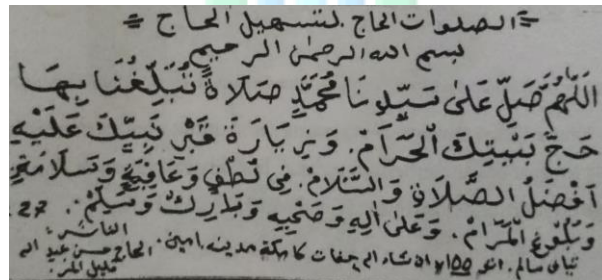 الصلوات الحاج لتسهيل الحاج
بسم الله الرحمن الرحيم
اَللّٰهُمَّ صَلِّ عَلٰى سَيِّدِنَا مُحَمَّدٍ صَلَاةً تُبَلِّغُنَا بِهَا
حَجَّ بَيْتِكَ الْحَرَامْ. وَزِيَارَةَ قَبْرِ نَبِيِّكَ عَلَيْهِ
اَفْضَلُ الصَّلَاةِ وَالسَّلَامْ. فِى لُطْفٍ وَعَافِيَةٍ وَسَلَامَةٍ
وَبُلُوْغِ الْمَرَامْ. وَعَلٰى اٰلِهِ وَصَحْبِهِ وَبَارِكْ وَسَلِّمْ. 27
الناشر:
ان شاء مكة مدينه. امين. الحاج حسن